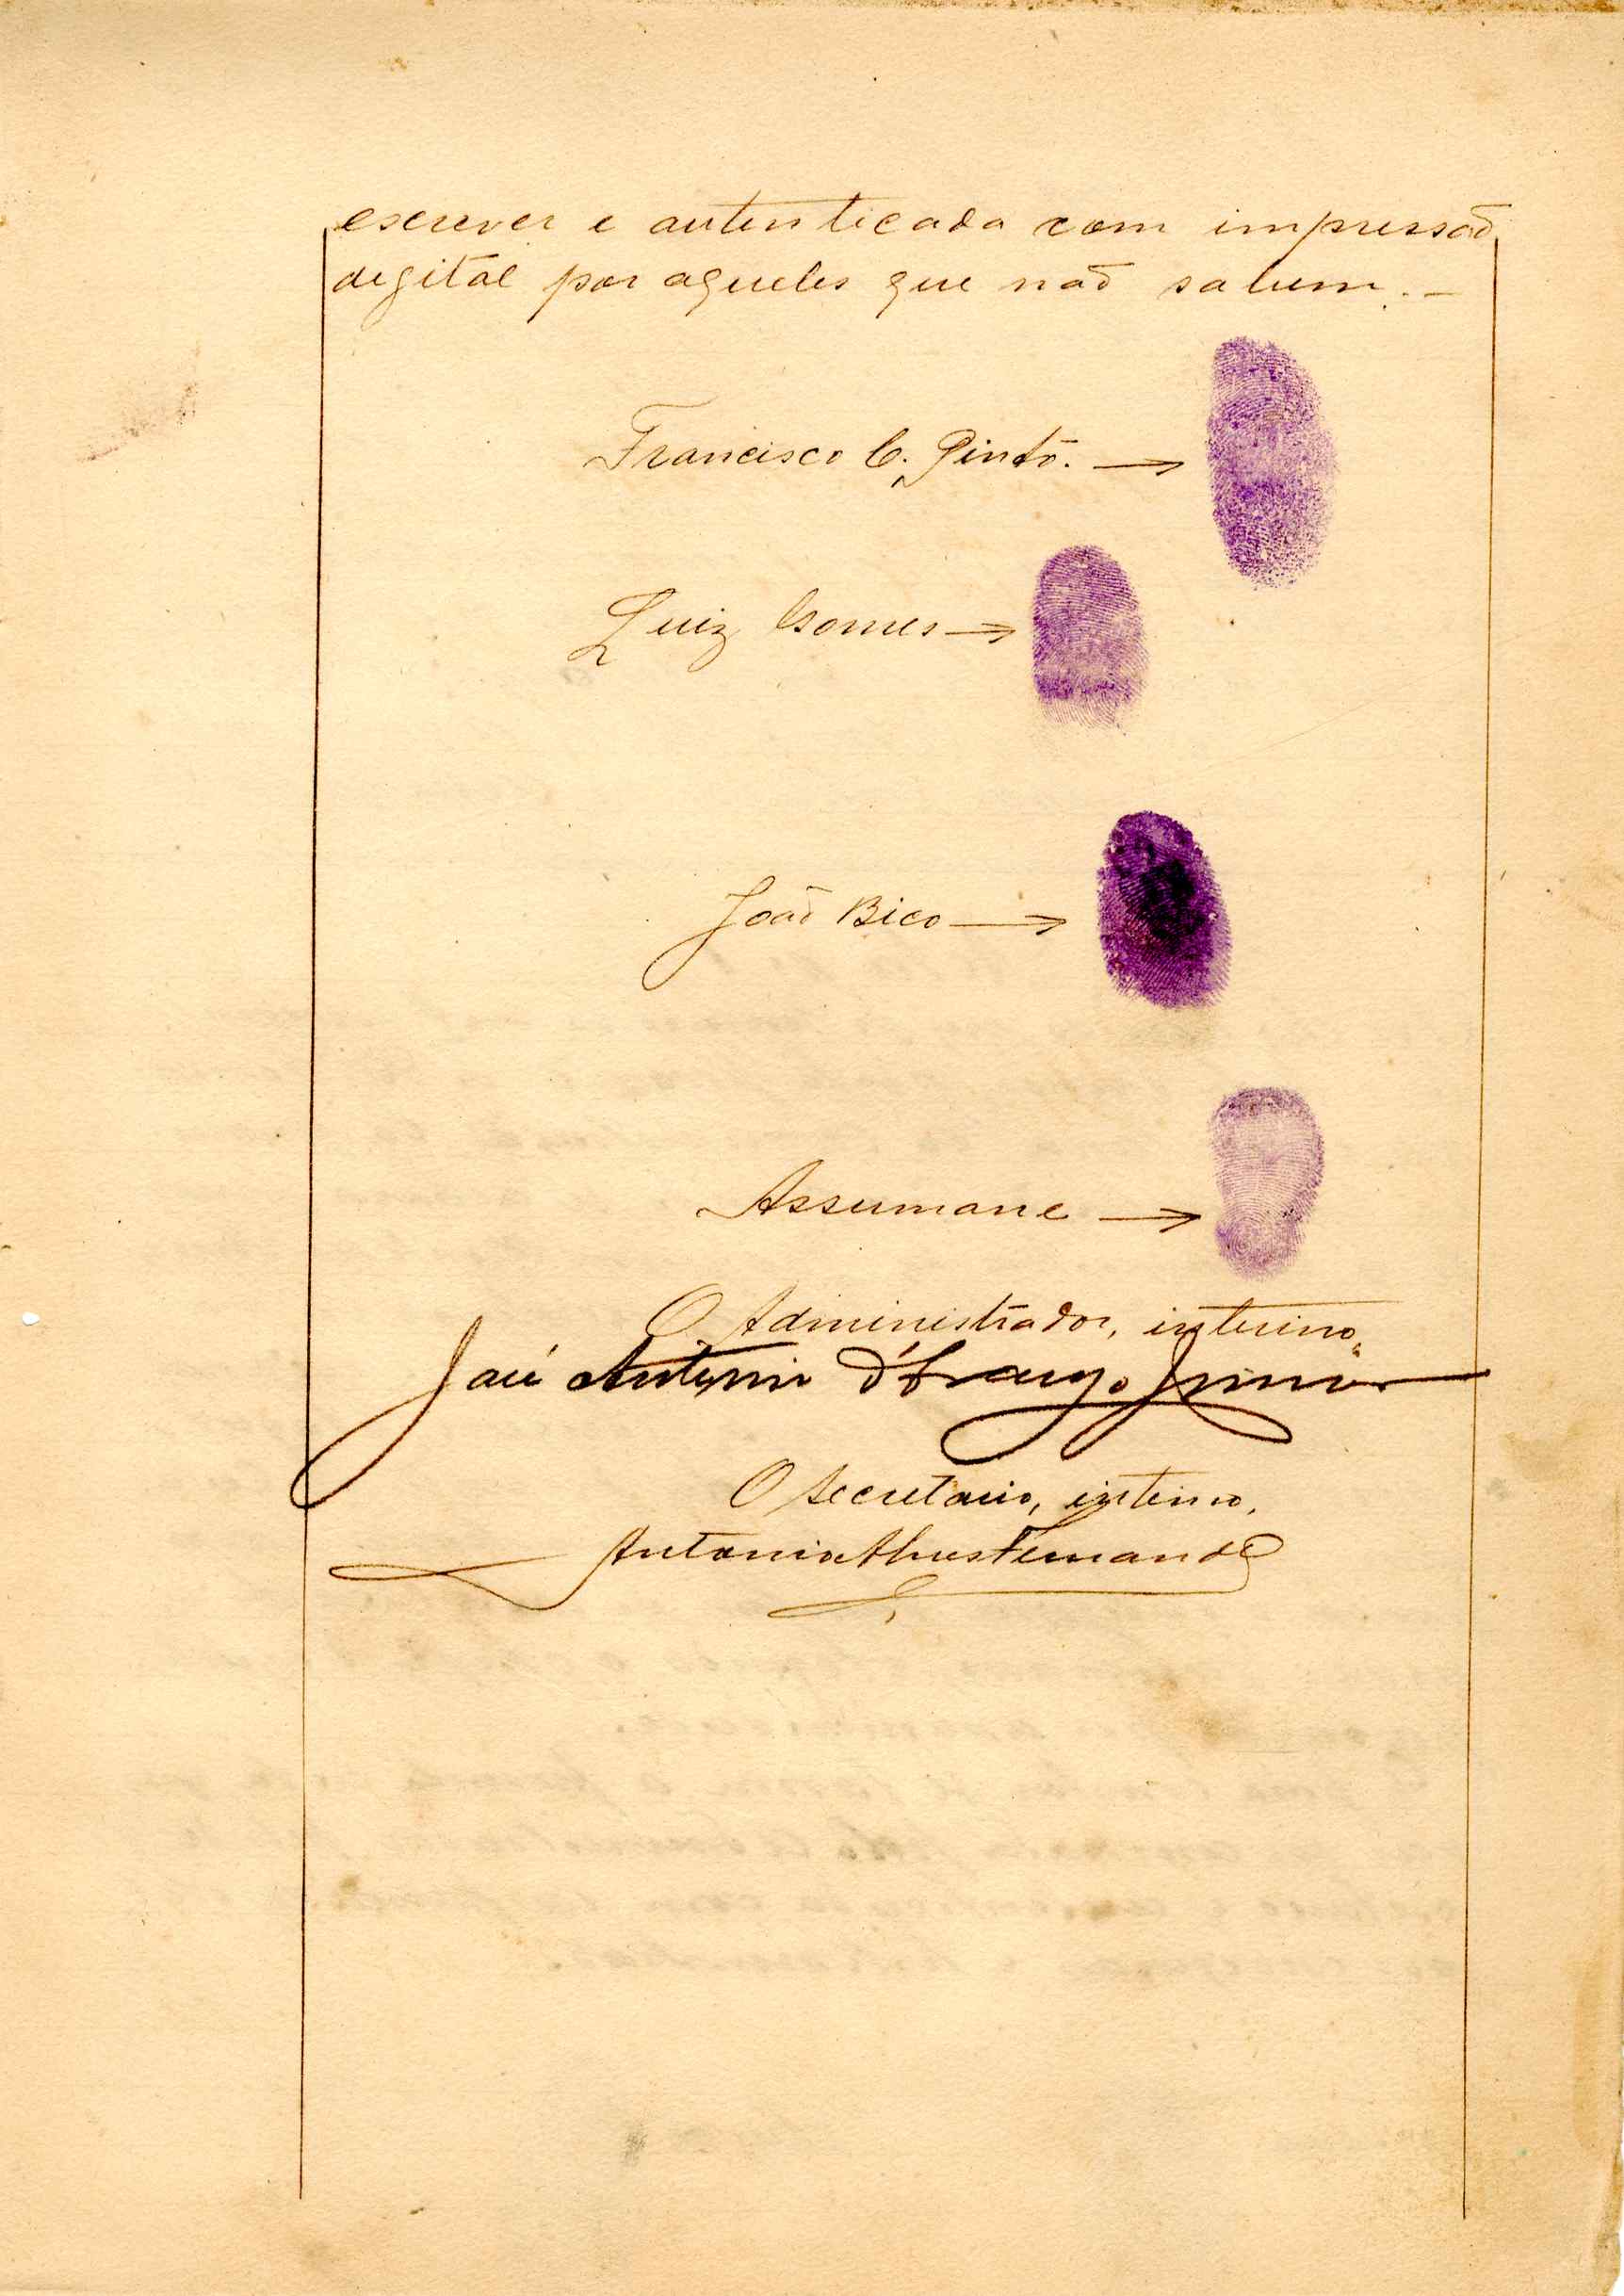 escrever e autenticada com impressão
degital por aqueles que não sabem. —
Francisco C. Pinto. →
Luiz Gomes →
João Bico →
Assumane →
O Administrador, interino,
José Antonio d'Araujo Junior
O Secretario, interino,
Antonio Alves Fernandes